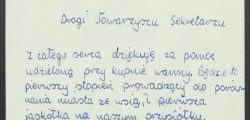 Drogi Towarzyszu Sekretarzu
Z całego serca dziękuję za pomoc
udzieloną przy kupnie wanny. Będzie to
pierwszy stopień prowadzący do porów-
nania miasta ze wsią, i pierwsza
jaskółka na naszym przysiółku.